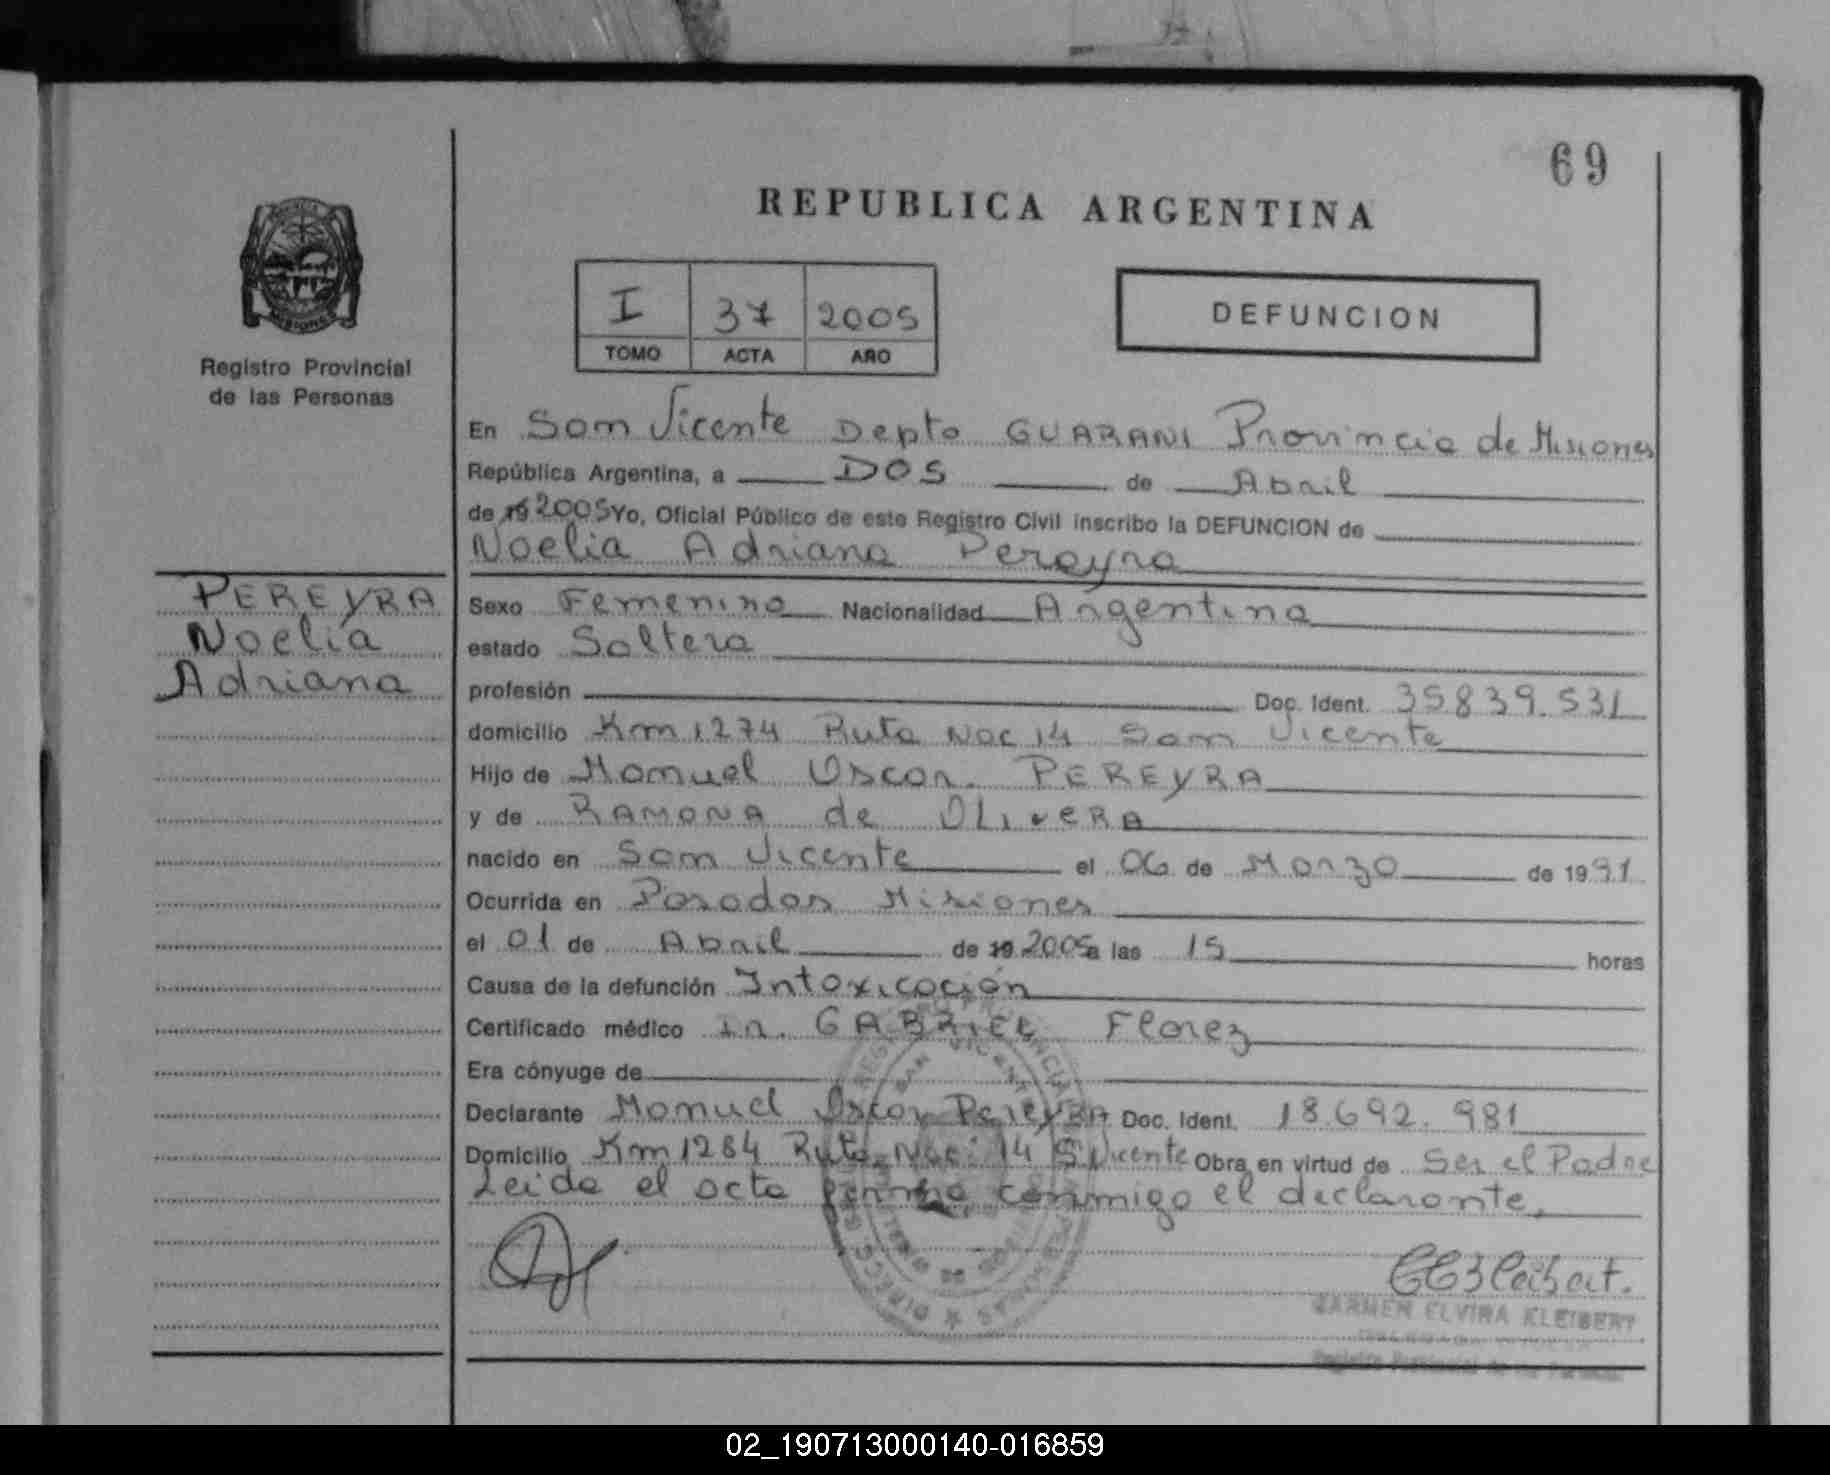 69
REPUBLICA ARGENTINA
I 37 2005
TOMO ACTA AÑO
DEFUNCION
MISIONES
Registro Provincial
de las Personas
En San Vicente Depto GUARANI Provincia de Misiones
República Argentina, a DOS de Abril
de 19 2005 Yo, Oficial Público de este Registro Civil inscribo la DEFUNCION de
Noelia Adriana Pereyra
PEREYRA
Noelia
Adriana
Sexo Femenino Nacionalidad Argentina
estado Soltera
profesión Doc. Ident. 35839.531
domicilio Km 1274 Ruta Nac 14 San Vicente
Hijo de Manuel Oscar. PEREYRA
y de RAMONA de OLIVERA
nacido en San Vicente el 06 de Marzo de 1991
Ocurrida en Posadas Misiones
el 01 de Abril de 19 2005 a las 15 horas
Causa de la defunción Intoxicación
Certificado médico GABRIEL Florez
Era cónyuge de
Declarante Manuel Oscar PereyRA Doc. Ident. 18.692.981
Domicilio Km 1284 Ruta Nac. 14 S Vicente Obra en virtud de Ser el Padre
Leida el acta firma conmigo el declarante,
CARMEN ELVIRA KLEIBERT
Registro Provincial de las Personas
02_190713000140-016859